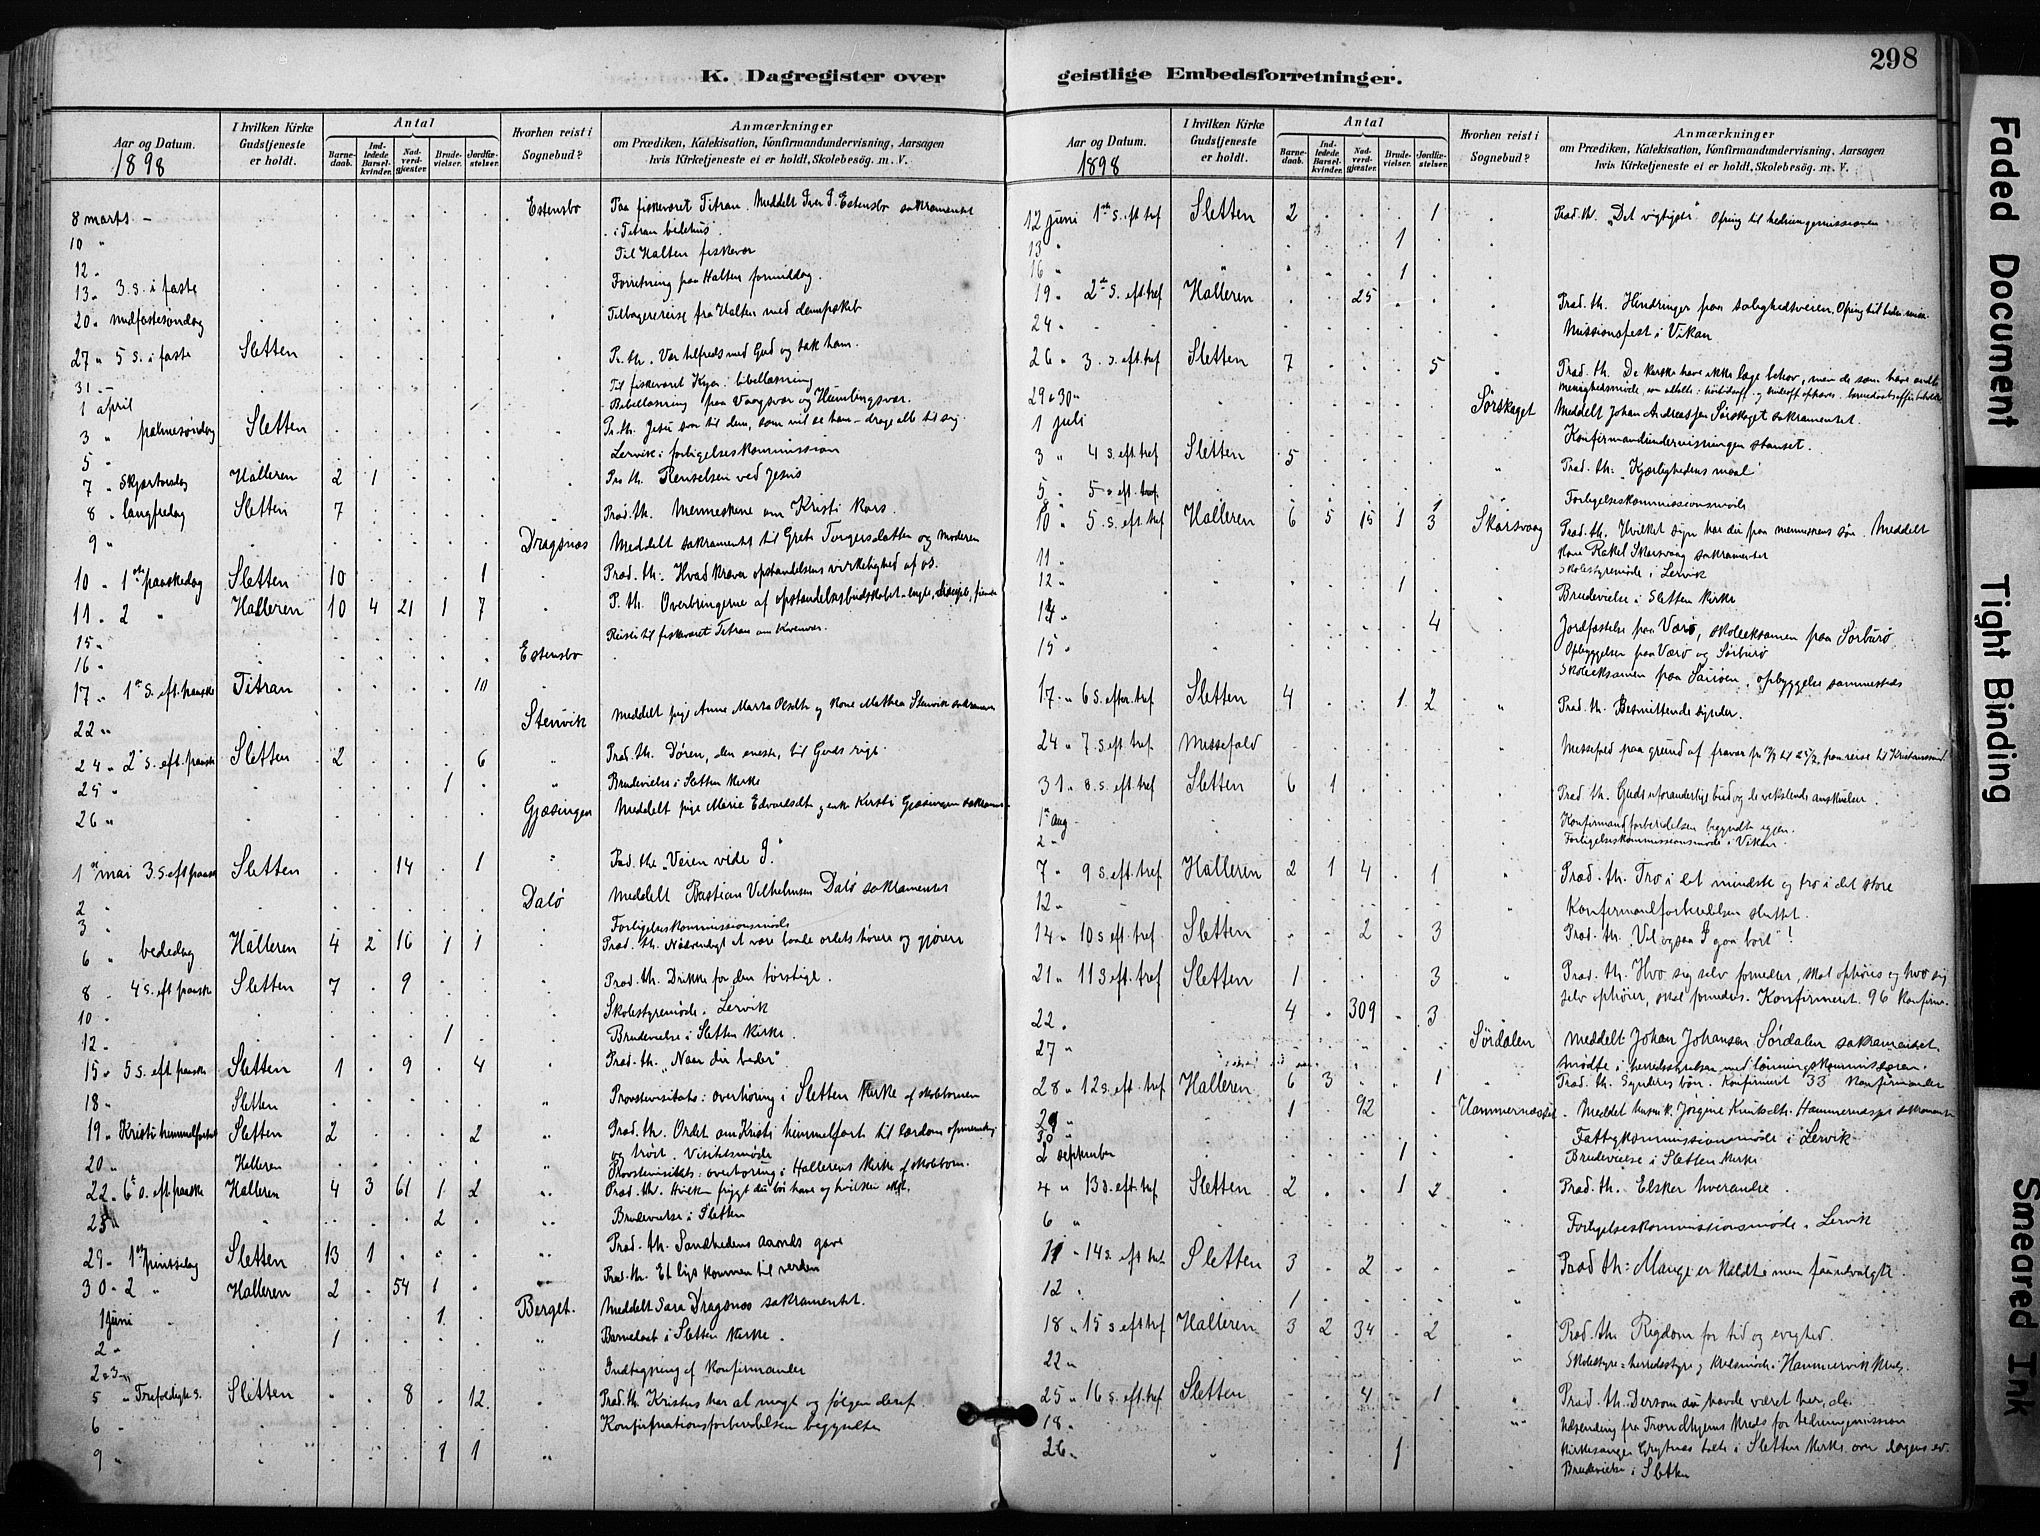 298
K. Dagregister over
geistlige Embedsforretninger.
Aar og Datum.
1898
I hvilken Kirke Gudstjeneste er holdt.
Antal
Barnedaab.
Indledede Barselkvinder.
Nadverdgjæster.
Brudevielser.
Jordfæstelser.
Hvorhen reist i Sognebud?
Anmærkninger
om Prædiken, Katekisation, Konfirmandundervisning, Aarsagen
hvis Kirketjeneste ei er holdt, Skolebesøg. m. V.
8 marts - Estensbø Paa fiskeværet Titran. Meddelt Iver I. Estensbø sakramentet
10 " i Titran bedehus.
12 " Til Halten fiskevær
13 " 3. s. i faste Forretning paa Halten formiddag.
20 " midfastesøndag Tilbagereise fra Halten med dampskib
27 " 5 s. i faste Sletten Pr. th. Vær tilfreds med Gud og tak ham.
31 - Til fiskeværet Kya: bibellæsning
1 april Bibellæsning paa Vaagsvær og Humlingsvær.
3 " palmesøndag Sletten Pr. th. Jesu svar til dem, som vil se ham - drage alle til sig.
5 " Lervik i forligelseskommission
7 " Skjærtorsdag Halleren 2 1 Pr. th. Renselsen ved Jesus
8 " langfredag Sletten 7 Præd. th. Menneskene om Kristi kors.
9 " Dragsnæs Meddelt sakramentet til Grete Torgersdatter og moderen
10 " 1ste paaskedag Sletten 10 1 Præd. th. Hvad kræver opstandelsens virkelighed af os.
11 " 2 " Halleren 10 4 21 1 7 P. th. Overbringerne af opstandelsesbudskabet - engle, disciple, fiender
15 " Reiste til fiskeværet Titran om Kvenvær.
16 " Estensbø
17 " 1ste s. eft. paaske Titran 10
22 " Stenvik Meddelt pige Anne Marta Olsdt. og kone Mathea Stenvik sakramentet
24 " 2 s. eft. paaske Sletten 2 6 Præd. th. Døren, den eneste, til Guds rige.
25 " 1 Brudevielse i Sletten kirke
26 " Gjæsingen Meddelt pige Marie Edvardsdt. og enke Kirsti Gjæsingen sakram.
1ste mai 3. s. eft paaske Sletten 14 1 Præd. th. "Veien vide I."
2 " Dalø Meddelt Bastian Vilhelmsen Dalø sakramentet
3 " Forligelseskommissionsmøde
6 " bededag Halleren 4 2 16 1 1 Præd. th. Nødvendigt at være baade ordets hørere og gjørere
8 " 4 s. eft paaske Sletten 7 9 Præd. th. Drikke for den tørstige.
10 " Skolestyremøde i Lervik
12 " 1 Brudevielse i Sletten kirke.
15 " 5 s. eft paaske Sletten 1 9 4 Præd. th. "Naar du beder"
18 " Sletten Provstevisitats: overhøring i Sletten kirke af skolebørnene
19 " Kristi himmelfart Sletten 2 2 Præd. th. Ordet om Kristi himmelfart til lærdom
og trøst. Visitatsmøde
20 " Halleren Provstevisitats: overhøring i Hallerens kirke af skolebørn.
22 " 6te s. eft paaske Halleren 4 3 61 1 2 Præd. th. Hvilken frygt du bør have og hvilken ikke.
23 " 2 Brudevielse i Sletten
29 " 1ste pintsedag Sletten 13 1 Præd. th. Sandhedens aands gave
30 " 2 " Halleren 2 54 1 Præd. th. Et lys kommen til verden
1 juni 1 Berget. Meddelt Sara Dragsnæs sakramentet.
2 " 1 Barnedaab i Sletten kirke.
2 & 3 " Indtegning af konfirmander
5 " Trefoldigh. s. Sletten 8 12 Præd. th. Kristus har al magt og følgen deraf
6 " Konfirmationsforberedelsen begyndte
9 " 1 1
Aar og Datum.
1898
I hvilken Kirke Gudstjeneste er holdt.
Antal
Barnedaab.
Indledede Barselkvinder.
Nadverdgjæster.
Brudevielser.
Jordfæstelser.
Hvorhen reist i Sognebud?
Anmærkninger
om Prædiken, Katekisation, Konfirmandundervisning, Aarsagen
hvis Kirketjeneste ei er holdt, Skolebesøg. m. V.
12 juni 1ste s. eft tref Sletten 2 1 Præd. th. "Det vigtigste" Ofring til hedningemissionen
13 " 1
16 " 1
19 " 2den s. eft. tref Halleren 25 Præd. th. Hindringer paa salighedsveien. Ofring til
24 " Missionsfest i Vikan
26 " 3. s. eft. tref Sletten 7 5 Præd. th. De karske have ikke læge behov, men de som have ondt
29 & 30 "
1 juli Sørskaget Meddelt Johan Andreassen Sørskaget sakramentet.
Konfirmandundervisningen stanset.
3 " 4 s. eft tref Sletten 5 Præd. th: "Kjærlighedens maal"
5 " Forligelseskommissionsmøde
10 " 5. s. eft. tref Halleren 6 5 15 1 3 Skarsvaag Præd. th. Hvilket syn har du paa menneskens søn. Meddelt
kone Rakel Skarsvaag sakramentet
11 " Skolestyremøde i Lervik
12 " 1 Brudevielse i Sletten kirke
14 " 4 Jordfæstelse paa Værø, skoleeksamen paa Sørburø
15 " Opbyggelser paa Værø og Sørburø
Skoleeksamen paa , opbyggelse sammesteds
17 " 6 s. efter. tref Sletten 4 1 2 Præd. th. Besmittende synder.
24 " 7. s eft. tref Messefald Messefald paa grund af fravær fra til 25/7, paa reise til Kristianssund.
31 " 8. s. eft tref Sletten 6 1 Præd. th. Guds uforanderlige bud og de vekslende anskuelser.
1ste aug Konfirmandforberedelsen begyndte igjen.
2 " Forligelseskommissionsmøde i Vikan.
7 " 9 s. eft. tref Halleren 2 1 4 1 Præd. th. Tro i det mindste og tro i det store
12 " Konfirmandforberedelsen sluttet.
14 " 10 s eft. tref Sletten 2 3 Præd. th. "Vil ogsaa I gaa bort"!
21 " 11 s eft. tref Sletten 1 3 Præd. th. Hvo sig selv fornedrer, skal ophøies og hvo sig
selv ophøier, skal fornedres. Konfirmeret 96 konfirm.
22 " 4 309 3
27 " Sørdalen Meddelt Johan Johansen Sørdalen sakramentet.
Mødte i herredsstyrelsen med lønningskommissæren.
28 " 12 s. eft. tref Halleren 6 3 1 Præd. th. Synderes bøn. Konfirmert 33 konfirmander
29 " 1 92 Hammernæsset Meddelt Jørgine Knutsdt. Hammernæsset sakramentet
30 " Fattigkommissionsmøde i Lervik
2 september 1 Brudevielse i Sletten kirke
4 " 13 s. eft. tref Sletten 2 1 2 Præd. th. Elsker hverandre.
6 " Forligelseskommissionsmøde i Lervik
11 " 14 s. eft tref Sletten 3 2 Præd th: Mange er kaldte men faa udvalgte.
12 " 1
18 " 15 s eft tref Halleren 3 2 34 2 Præd. th. Rigdom for tid og evighed.
22 " Skolestyre- herredsstyre og kredsmøde i Hammervik kreds.
25 " 16 s. eft. tref Sletten 4 1 Præd. th. Dersom du havde været her, da
18 " Udsending fra Trondhjems kreds for hedningemission
26 " 1 Kirkesanger Grytnæs talte i Sletten kirke over dagens ev.
Brudevielse i Sletten
Faded Document
Tight Binding
Smeared Ink